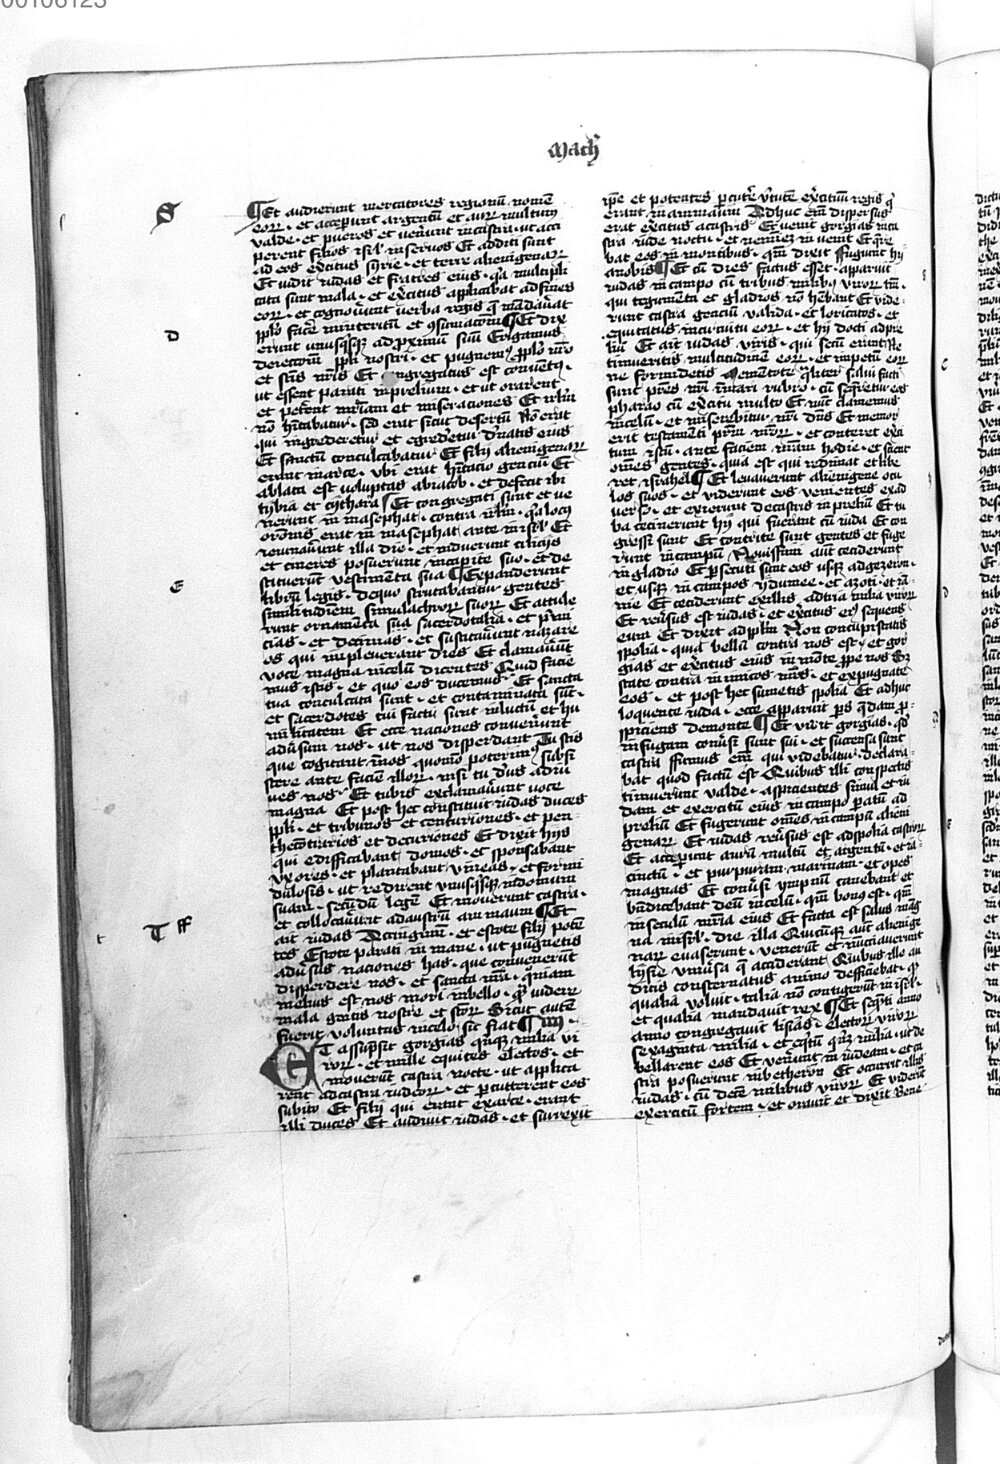 00106123
Mach̄
S
¶Et audierunt mercatores regionū nomē
eoꝝ · et acceperunt argentū et auꝝ multum
valde · et pueros et venerunt in castra · ut acci
perent filios isrl̄ in servos Et additi sunt
ad eos exercitus syrie · et terre alienigenaꝝ
Et vidit iudas et fratres eius · qa multipli
cata sunt mala · et exercitus applicabat ad fines
eoꝝ · et cognoverunt verba regis q̄ mandaverat
ppło facere in interitū et consumacionē ¶Et dix
D
erunt unusqisqꝫ ad proximū suū Erigamus
deiectionē ppłi nostri · et pugnemꝰ p ppło nr̄o
et scīs nr̄is Et congregatus est conventꝰ ·
ut essent parati in prelium · et ut orarent
et peterent mīam et miseraciones Et irłm
nō hītabatur · sed erat sicut desertū Nō erat
qui ingrederetur et egredetur de natis eius
Et sanctū conculcabatur Et filij alienigenaꝝ
erant in arce · ubi erat hītacio genciū Et
ablata est voluptas a iacob · et defecit ibi
tybia et cythara ¶Et congregati sunt et ve
nerunt in masephat · contra irłm · qa locꝰ
oracionis erat in masephat ante in isrl̄ Et
ieiunaverunt illa die · et induerunt cilicijs
et cineres posuerunt in capite suo · et de
stituerūt vestimēta sua ¶Et expanderunt
E
librū legis · de quo scrutabantur gentes
similitudinem simulachroꝝ suoꝝ Et attule
runt ornamēta sua sacerdotalia · et primi
cias · et decimas · et suscitaverunt nazare
os qui impleverant dies Et clamaverūt
voce magna in celū dicentes Quid facie
mus istis · et quo eos ducemus Et sancta
tua conculcata sunt · et contaminata sūt ·
et sacerdotes tui facti sunt in luctū et hu
militatem Et ecce naciones convenerunt
adversum nos · ut nos disperdant Tu scis
que cogitant in nos quomō poterimꝰ subsi
stere ante faciē illoꝝ · nisi tu dn̄s adiu
ves nos · Et tubis exclamaverunt voce
magna Et post hec constituit iudas duces
ppłi · et tribunos et centuriones · et pen ·
thecōtrarios et decuriones Et dixit hijs
qui edifficabant domos · et sponsabant
uxores · et plantabant vineas · et formi
dolosis · ut redirent unusqisqꝫ in domum
suam · secundū legē Et moverunt castra ·
T ff
t
et collocaverūt ad austrū ammaum ¶Et
ait iudas Accingimī · et estote filij potē
tes Estote parati in mane · ut pugnetis
adversus naciones has · que convenerūt
disperdere nos · et sancta nr̄a · qūniam
melius est nos mori in bello · qꝫ videre
mala gentis nostre et scōꝝ Sicut autē
fuerit voluntas in celo · sic fiat ¶ IIII ·
ET assūpsit gorgias qinqꝫ milia vi
roꝝ · et mille equites electos · et
moverūt castra nocte · ut applica
rent ad castra iudeoꝝ · et percutterent eos
subito Et filij qui erant ex arce · erant
illi duces Et audivit iudas · et surrexit
ip̄e et potentes percutere virtutē exercituū regis q̄
erant in ammaum Adhuc enī dispersus
erat exercitus a castris Et venit gorgias in ca
stra iude noctu · et neminē invenit Et qere
bat eos in montibus · qm̄ dixit ffugiunt hij
a nobis ¶Et cū dies factus esset · apparuit
iudas in campo cū tribus milibꝰ viroꝝ tm̄ ·
qui tegumēta et gladios nō hēbant Et vide ·
runt castra genciū valida · et loricatos · et
equitatus in circuitu eoꝝ · et hij docti ad pre
liū Et ait iudas viris · qui secū erunt Ne
timueritis multitudinē eoꝝ · et impetū eoꝝ
ne formidetis Mementote qualiter salvi facti
sunt pr̄es nr̄i in mari rubro · cū seqretur eos
pharao cū exercitu multo Et nūc clamemus
in celū · et miserebitur nr̄i dn̄s Et memor
erit testamēti patrum nr̄oꝝ · et conteret exer
citum istū · ante faciem nr̄am hodie · et scient
om̄es gentes · quia est qui redimat et libe
ret israhel ¶Et levaverunt alienigene ocu
los suos · et viderunt eos venientes ex ad
verso · et exierunt de castris in preliū Et tu
ba cecinerunt hij qui fuerant cū iuda Et con
gressi sunt Et contrite sunt gentes et fuge
runt in campū Novissimi aut̄ ceciderunt
in gladio Et persecuti sunt eos usqꝫ ad gezeron ·
et usqꝫ in campos ydumee · et azoti · et iā
nie Et ceciderunt ex illis ad tria milia viroꝝ
Et reversus est iudas · et exercitus eiꝰ sequens
eum Et dixit ad ppłm Non concupiscatis
spolia · quia bella contra nos est · et gor
gias et exercitus eius in mōte prope nos Sꝫ
state contra inimicos nr̄os · et expugnate
eos · et post hec sumetis spolia Et adhuc
loquente iuda · ecce apparuit pars qedam pro ·
spiciens de monte ¶Et vidit gorgias · qd
in fugam conversi sunt sui · et succensa sunt
castra ffumus enī qui videbatur · declara
bat quod factū est Quibus illi conspectis
timuerunt valde · aspicientes simul et iu
dam et exercitū eius in campo paratū ad
preliū Et fugerunt om̄es in campū alieni
genaꝝ Et iudas reversus est ad spolia castroꝝ
Et acceperunt aurū multū et argentū · et ia ·
cinctū · et purpuram marinam · et opes
magnas Et conversi ympnū canebant et
bn̄dicebant deū in celū · qm̄ bonꝰ est · qm̄
in seculū mīa eius Et facta est salus mag
na in isrl̄ · die illa Quicūqꝫ aut̄ alienige
naꝝ evaserunt · venerūt et nūciaverunt
lysie universa q̄ acciderant Quibus ille au
ditis consternatus animo defficiebat · qꝫ
qualia voluit · talia nō contigerūt in isrl̄ ·
et qualia mandavit rex ¶Et seqenti anno
anno congregavit lisias · electoꝝ viroꝝ
sexaginta milia · et eqitū qinqꝫ milia · ut de
bellarent eos Et venerunt in iudeam · et ca
stra posuerunt in betheron Et occurrit illis
iudas · cū decē milibus viroꝝ Et viderūt
exercitū fortem · et oravit et dixit Bene